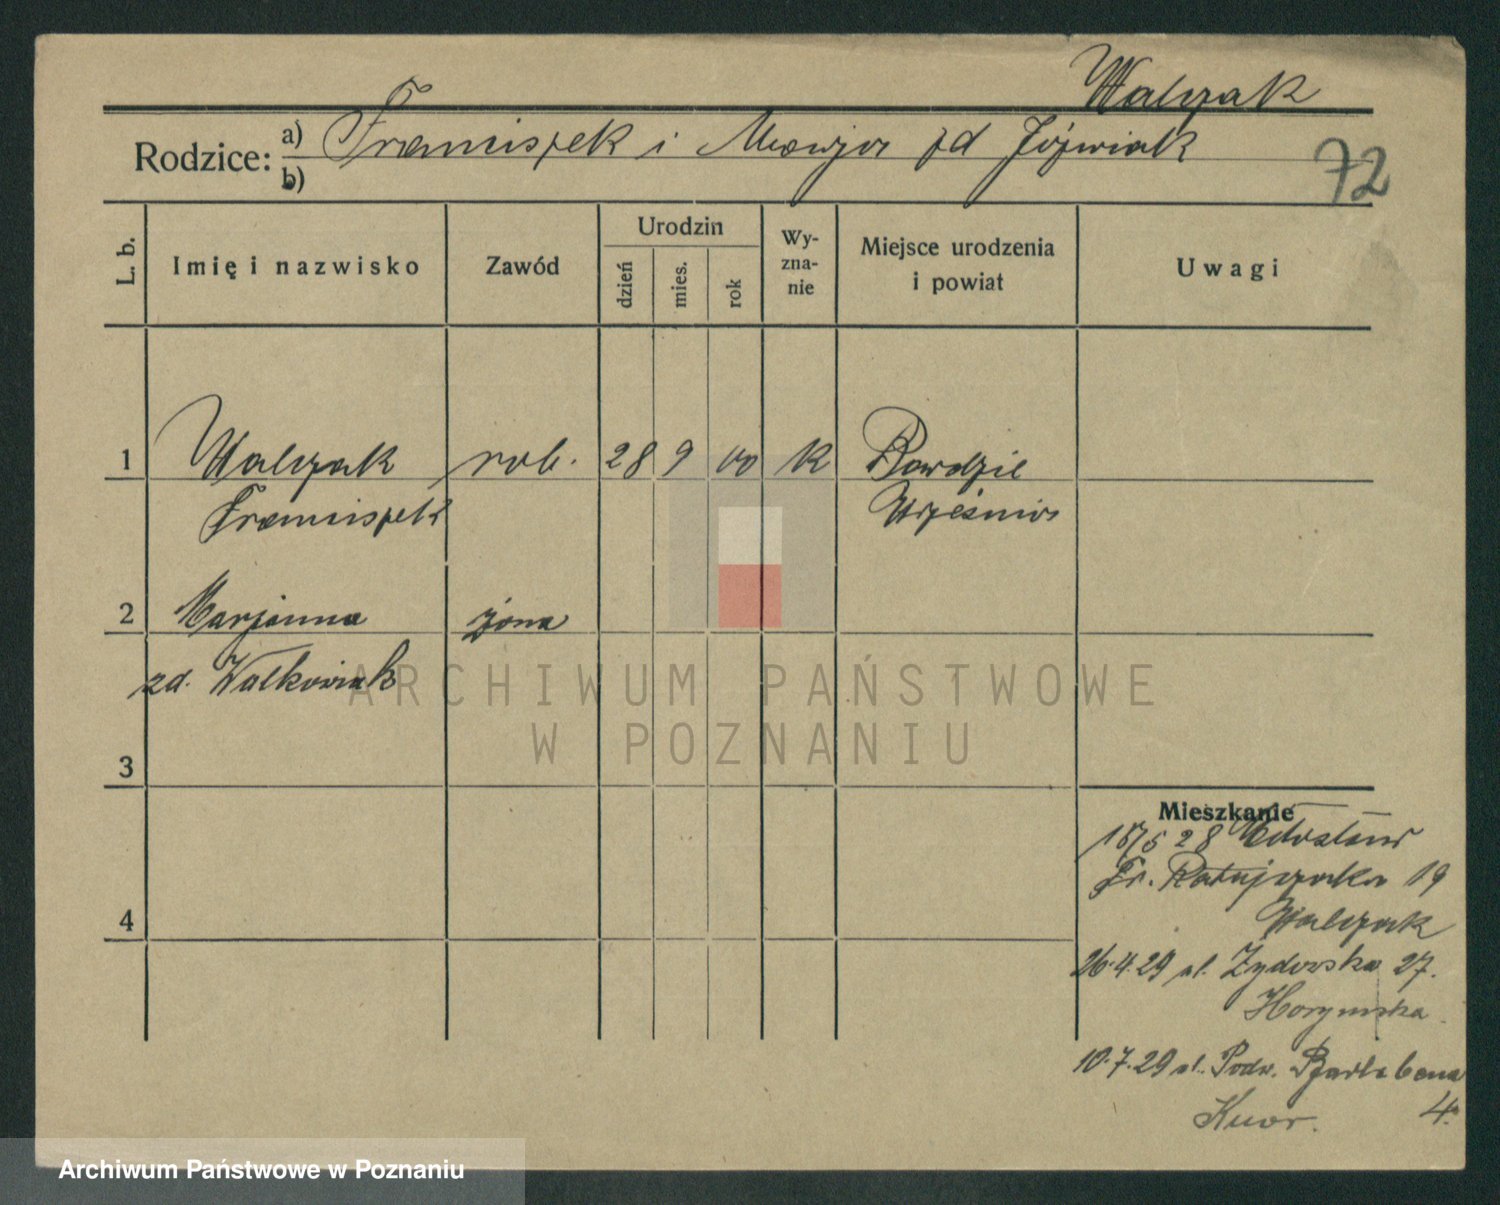 Walczak
Rodzice: a) Franciszek i Marja zd Jóźwiak
b)
72
L. b.
Imię i nazwisko
Zawód
Urodzin
dzień
mies.
rok
Wy-
zna-
nie
Miejsce urodzenia
i powiat
Uwagi
1 Walczak rob. 28 9 00 k Bardzie
Franciszek Września
2 Marjanna żona
zd. Walkowiak
3
4
ARCHIWUM PAŃSTWOWE
W POZNANIU
Mieszkanie
28
Fr. Ratajczaka 19
Walczak
26.4.29 ul. Żydowska 27.
10.7.29 ul. Podw.
4.
Archiwum Państwowe w Poznaniu